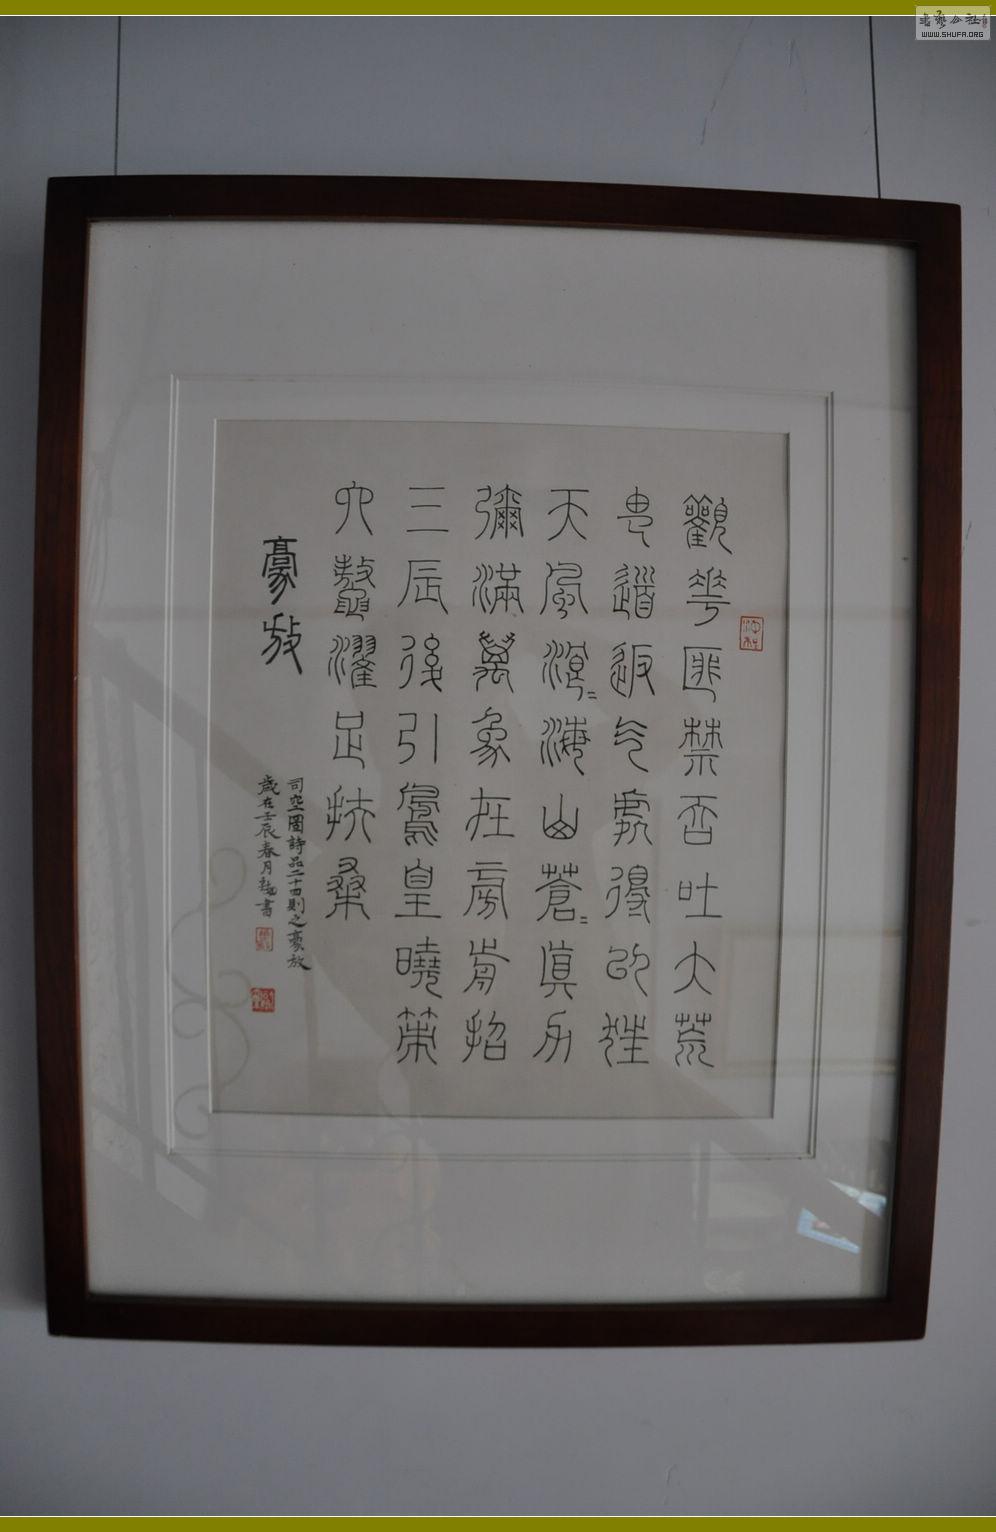 書藝公社
WWW.SHUFA.ORG
觀華匪禁吞吐大荒
由道返气處得以狂
天風浪〻海山蒼〻真力
彌滿萬象在旁前招
三辰後引鳳皇曉策
六鼇濯足扶桑
豪放
司空圖詩品二十四則之豪放
歲在壬辰春月書